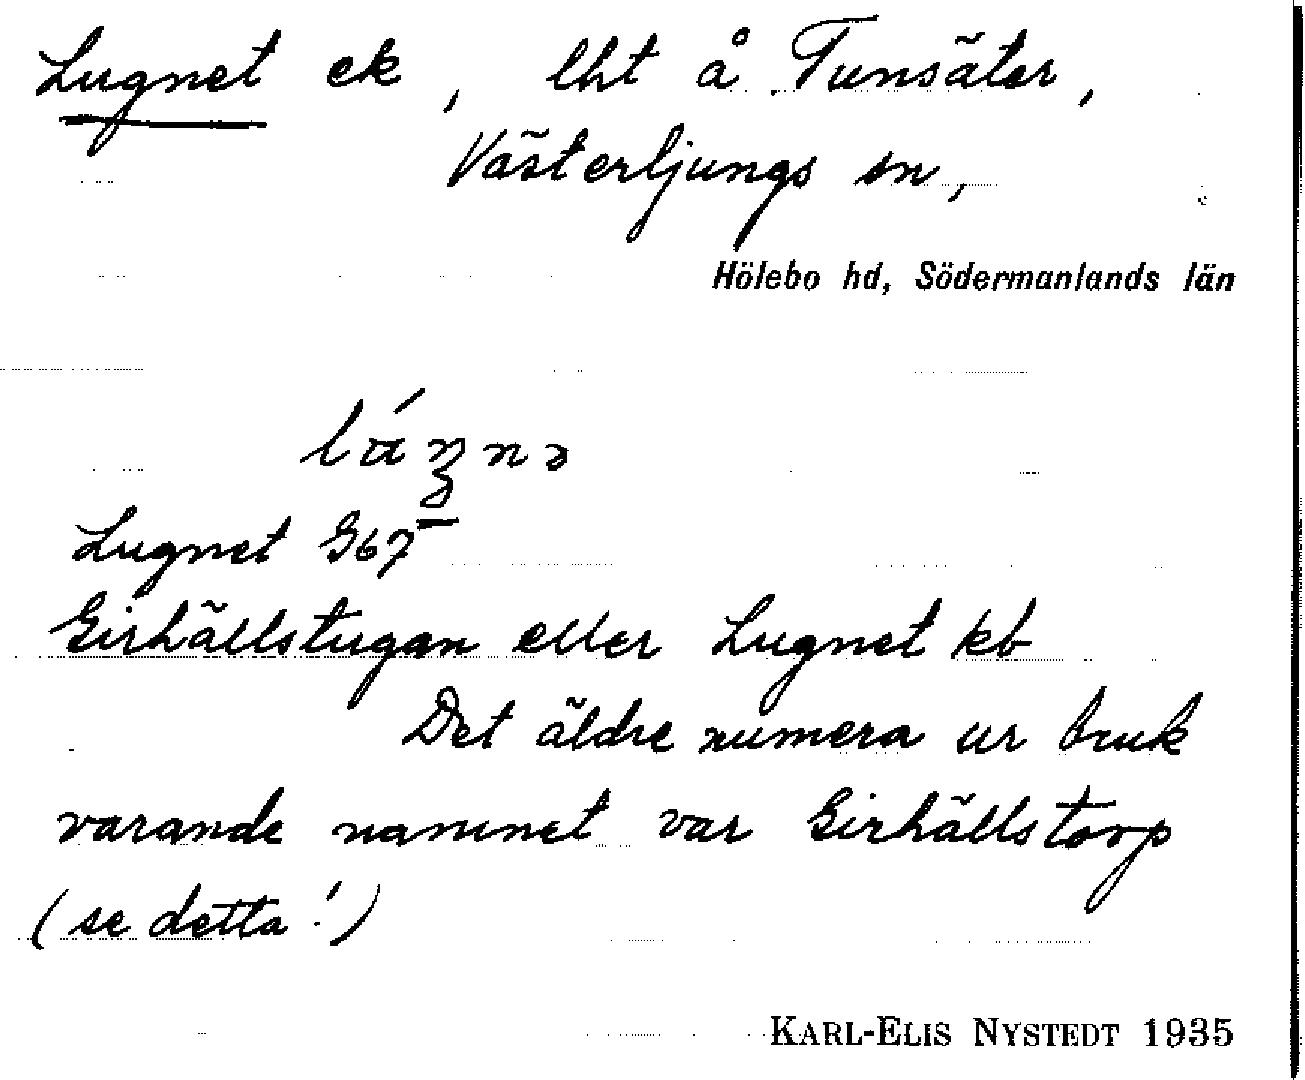 Lugnet ek, lht å Tunsäter,
Västerljungs sn,
Hölebo hd, Södermanlands län
Lugnet G67
Girhällstugan eller Lugnet kb
Det äldre numera ur bruk
varande namnet var Girhällstorp
(se detta!)
KARL-ELIS NYSTEDT 1935